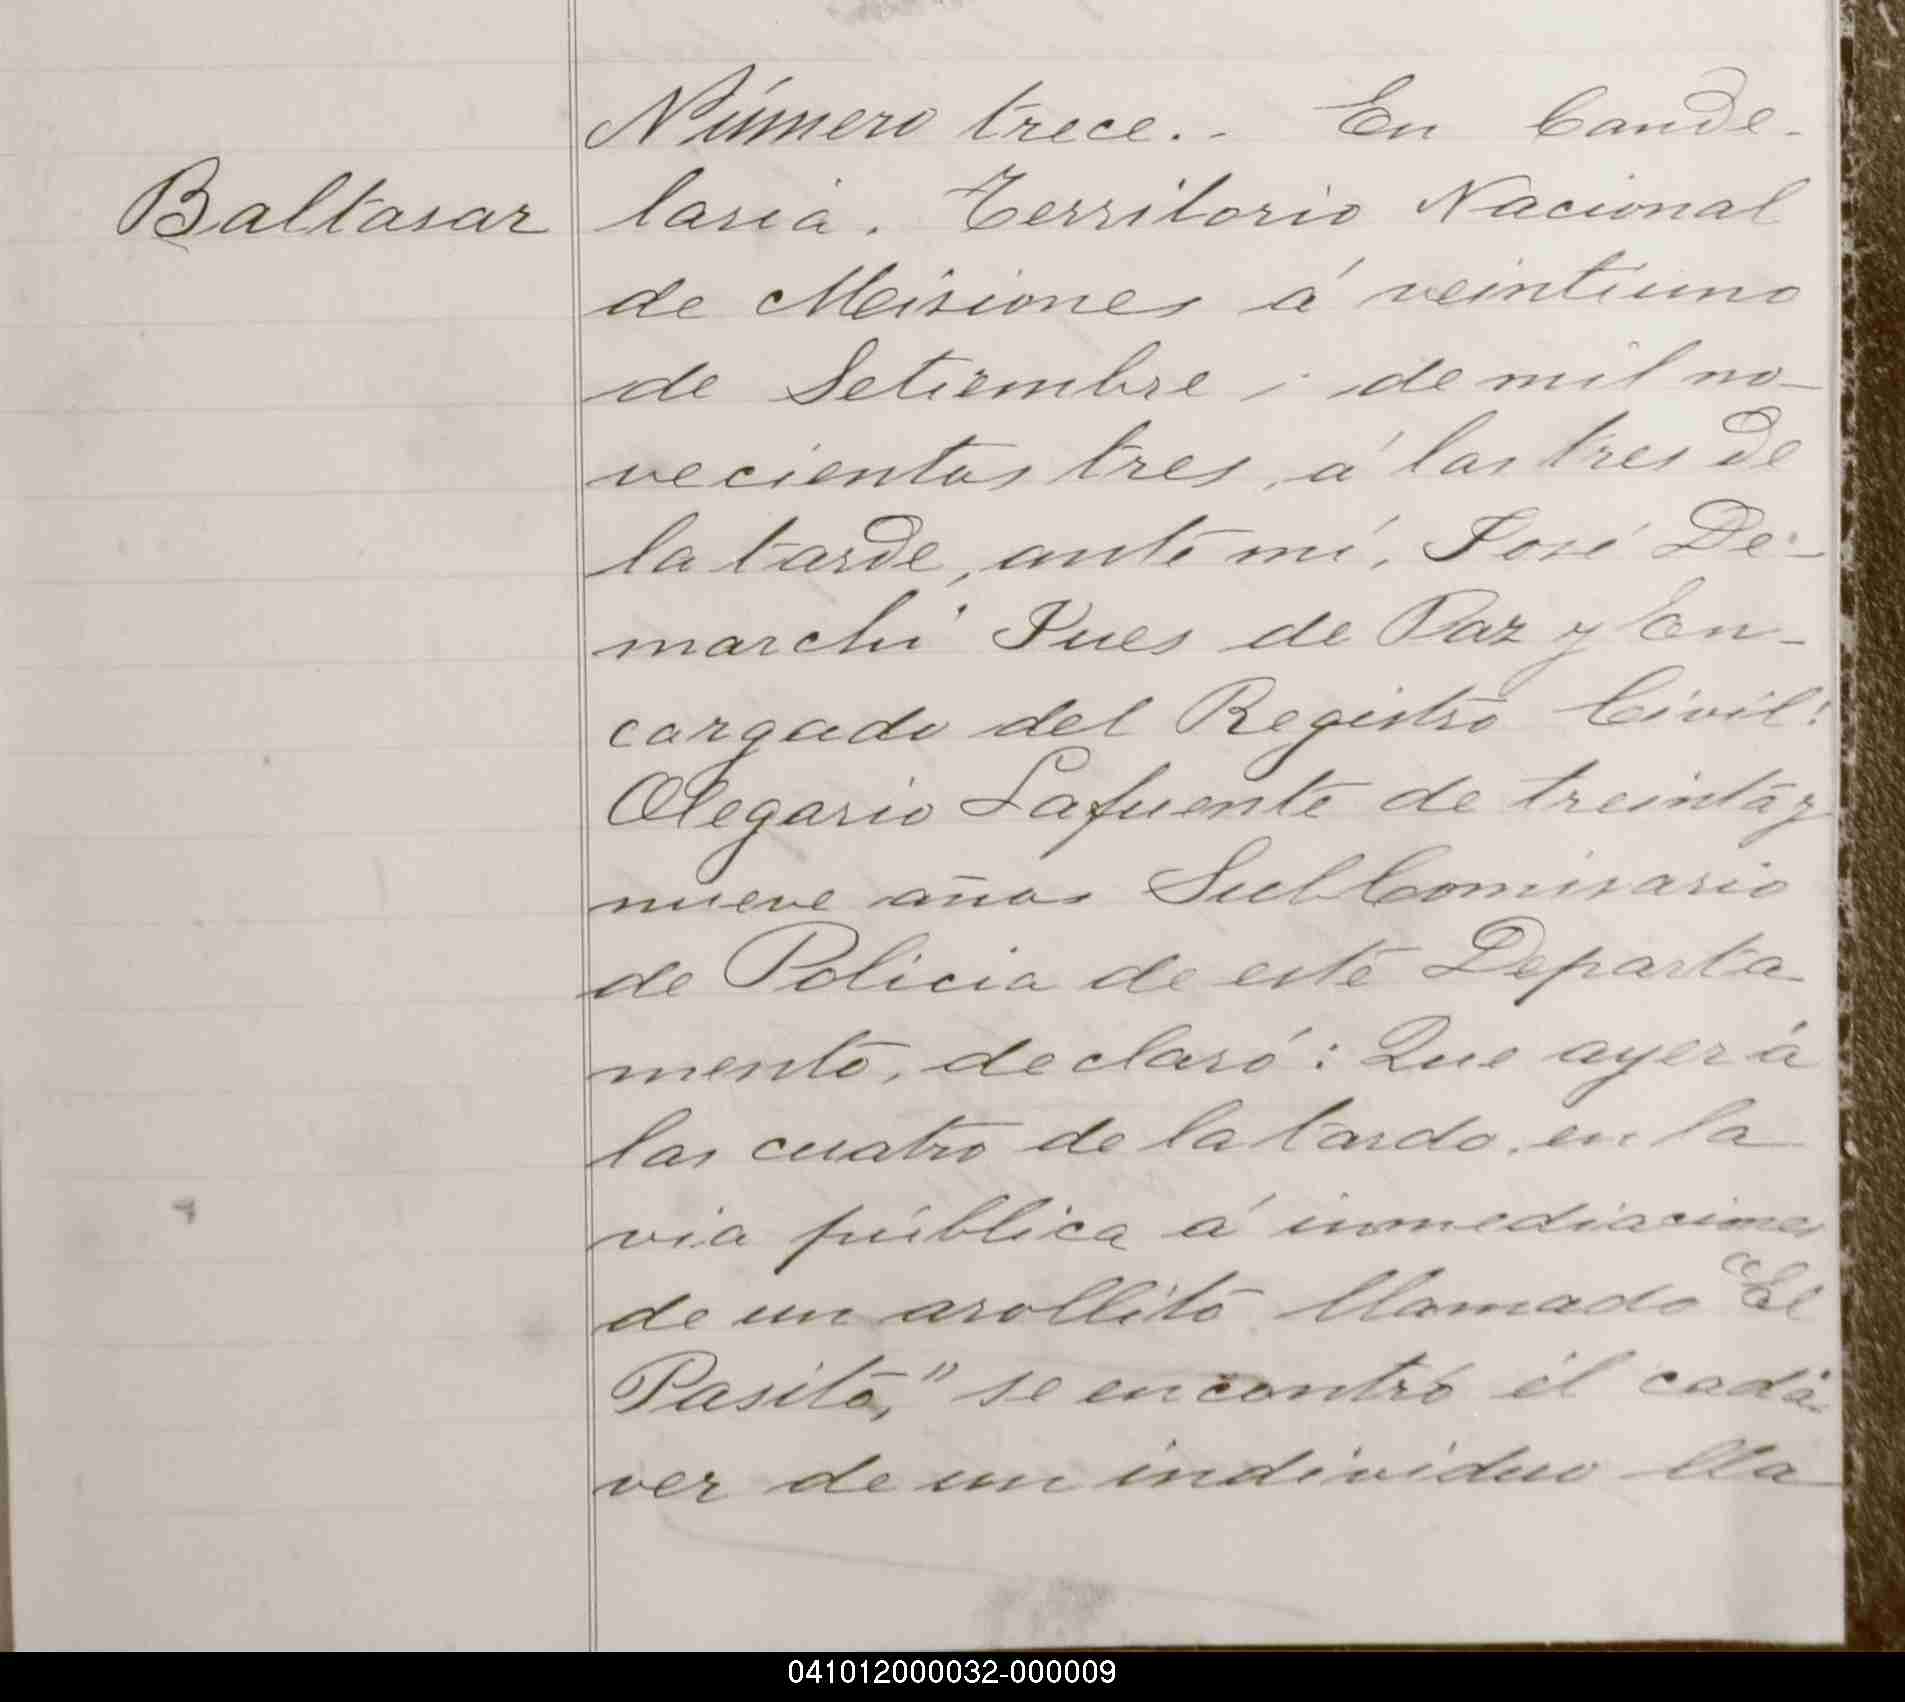 Número trece.- En Cande-
Baltasar
laria. Territorio Nacional
de Misiones á veintiuno
de Setiembre, de mil no-
vecientos tres, á las tres de
la tarde, ante mí, José De-
marchi Jues de Paz y En-
cargado del Registro Civil:
Olegario Lafuente de treinta y
nueve años SubComisario
de Policia de este Departa-
mento, declaró: Que ayer á
las cuatro de la tarde, en la
via pública á inmediaciones
de un arollito llamado "El
Pasito," se encontró el cadá-
ver de un individuo lla
041012000032-000009